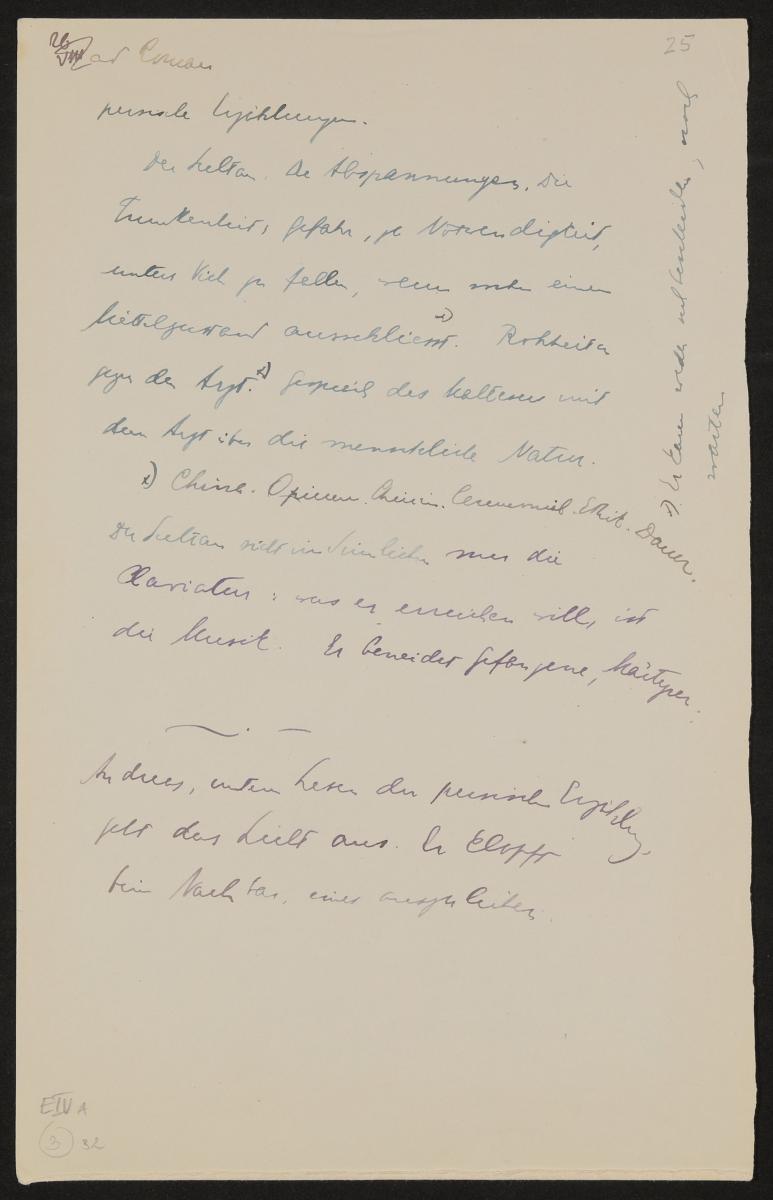 26/VIII ad Roman
25
persische Erzählungen.
Der Sultan. Die Abspannungen. Die
Trunkenheit, Gefahr, ja Notwendigkeit,
unters Vieh zu fallen, wenn man einen
Mittelzustand ausschliesst. 1) Rohheiten
gegen den Arzt. 2) Gespräch des Maltesers mit
dem Arzt über die menschliche Natur.
2) China. Opium. Ceremoniel. Ethik. Dauer.
Der Sultan sieht im Sinnlichen nur die
Claviatur: was er erreichen will, ist
die Musik. Er beneidet Gefangene, Märtyrer.
Andreas, unterm Lesen der persischen Erzählung
geht das Licht aus. Er klopft
beim Nachbar, eines auszuleihen.
1) Er kann weder sich bescheiden, noch
warten
EIV A
3 32